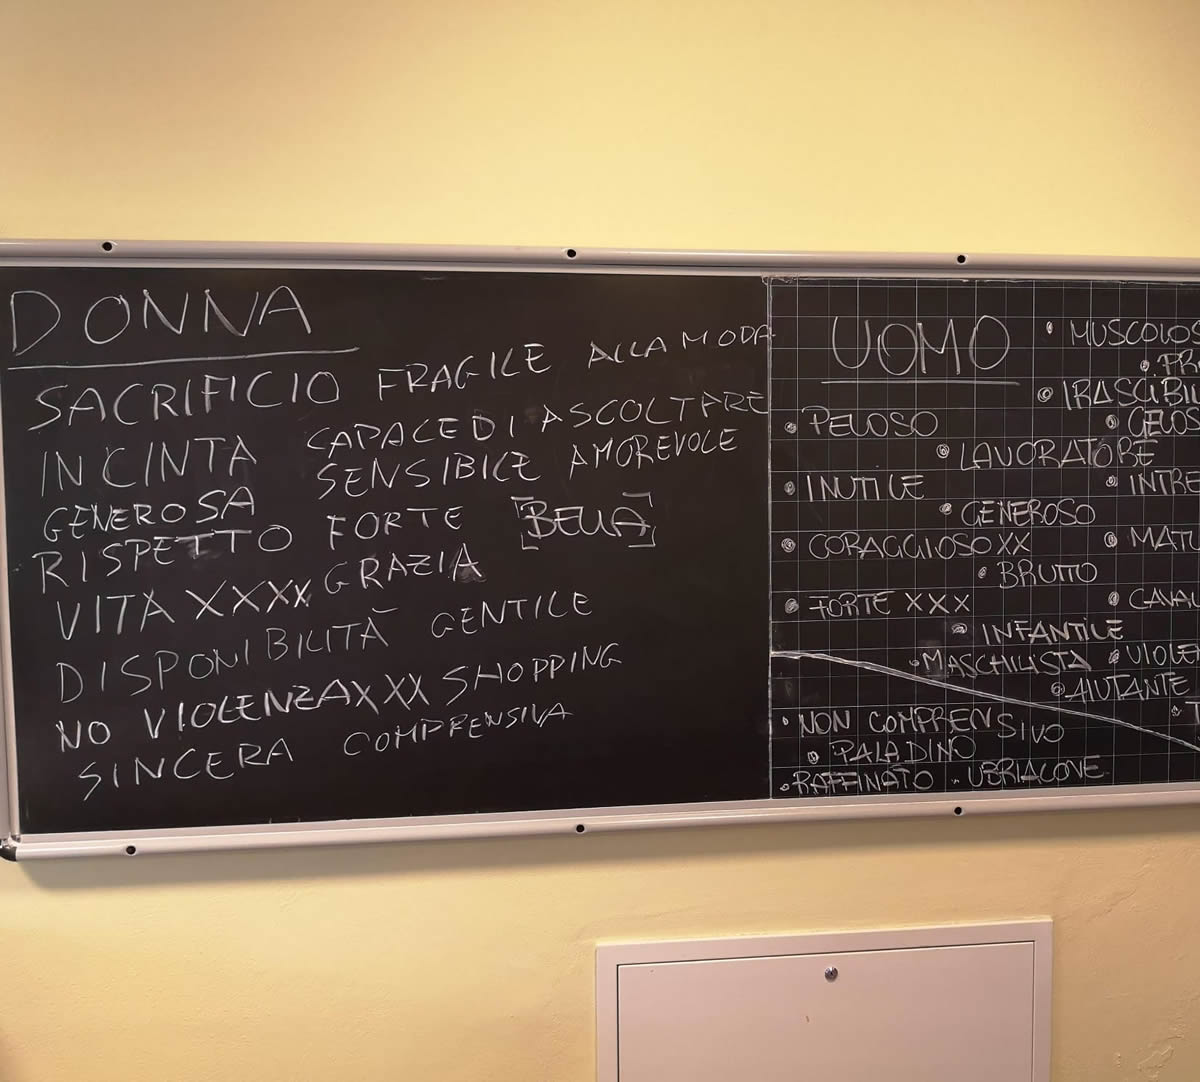 DONNA
SACRIFICIO FRAGILE ALLA MODA
INCINTA CAPACE DI ASCOLTARE
GENEROSA SENSIBILE AMOREVOLE
RISPETTO FORTE [BELLA]
VITA XXXX GRAZIA
DISPONIBILITÀ GENTILE
NO VIOLENZA XXX SHOPPING
SINCERA COMPRENSIVA
UOMO
• MUSCOLOS
• PR
• IRASCIBIL
• PELOSO
• GELOS
• LAVORATORE
• INUTILE
• INTRE
• GENEROSO
• CORAGGIOSO XX
• MATU
• BRUTTO
• FORTE XXX
• CAVAL
• INFANTILE
• MASCHILISTA
• VIOLE
• AIUTANTE
• T
• NON COMPRENSIVO
• PALADINO
• RAFFINATO • UBRIACONE